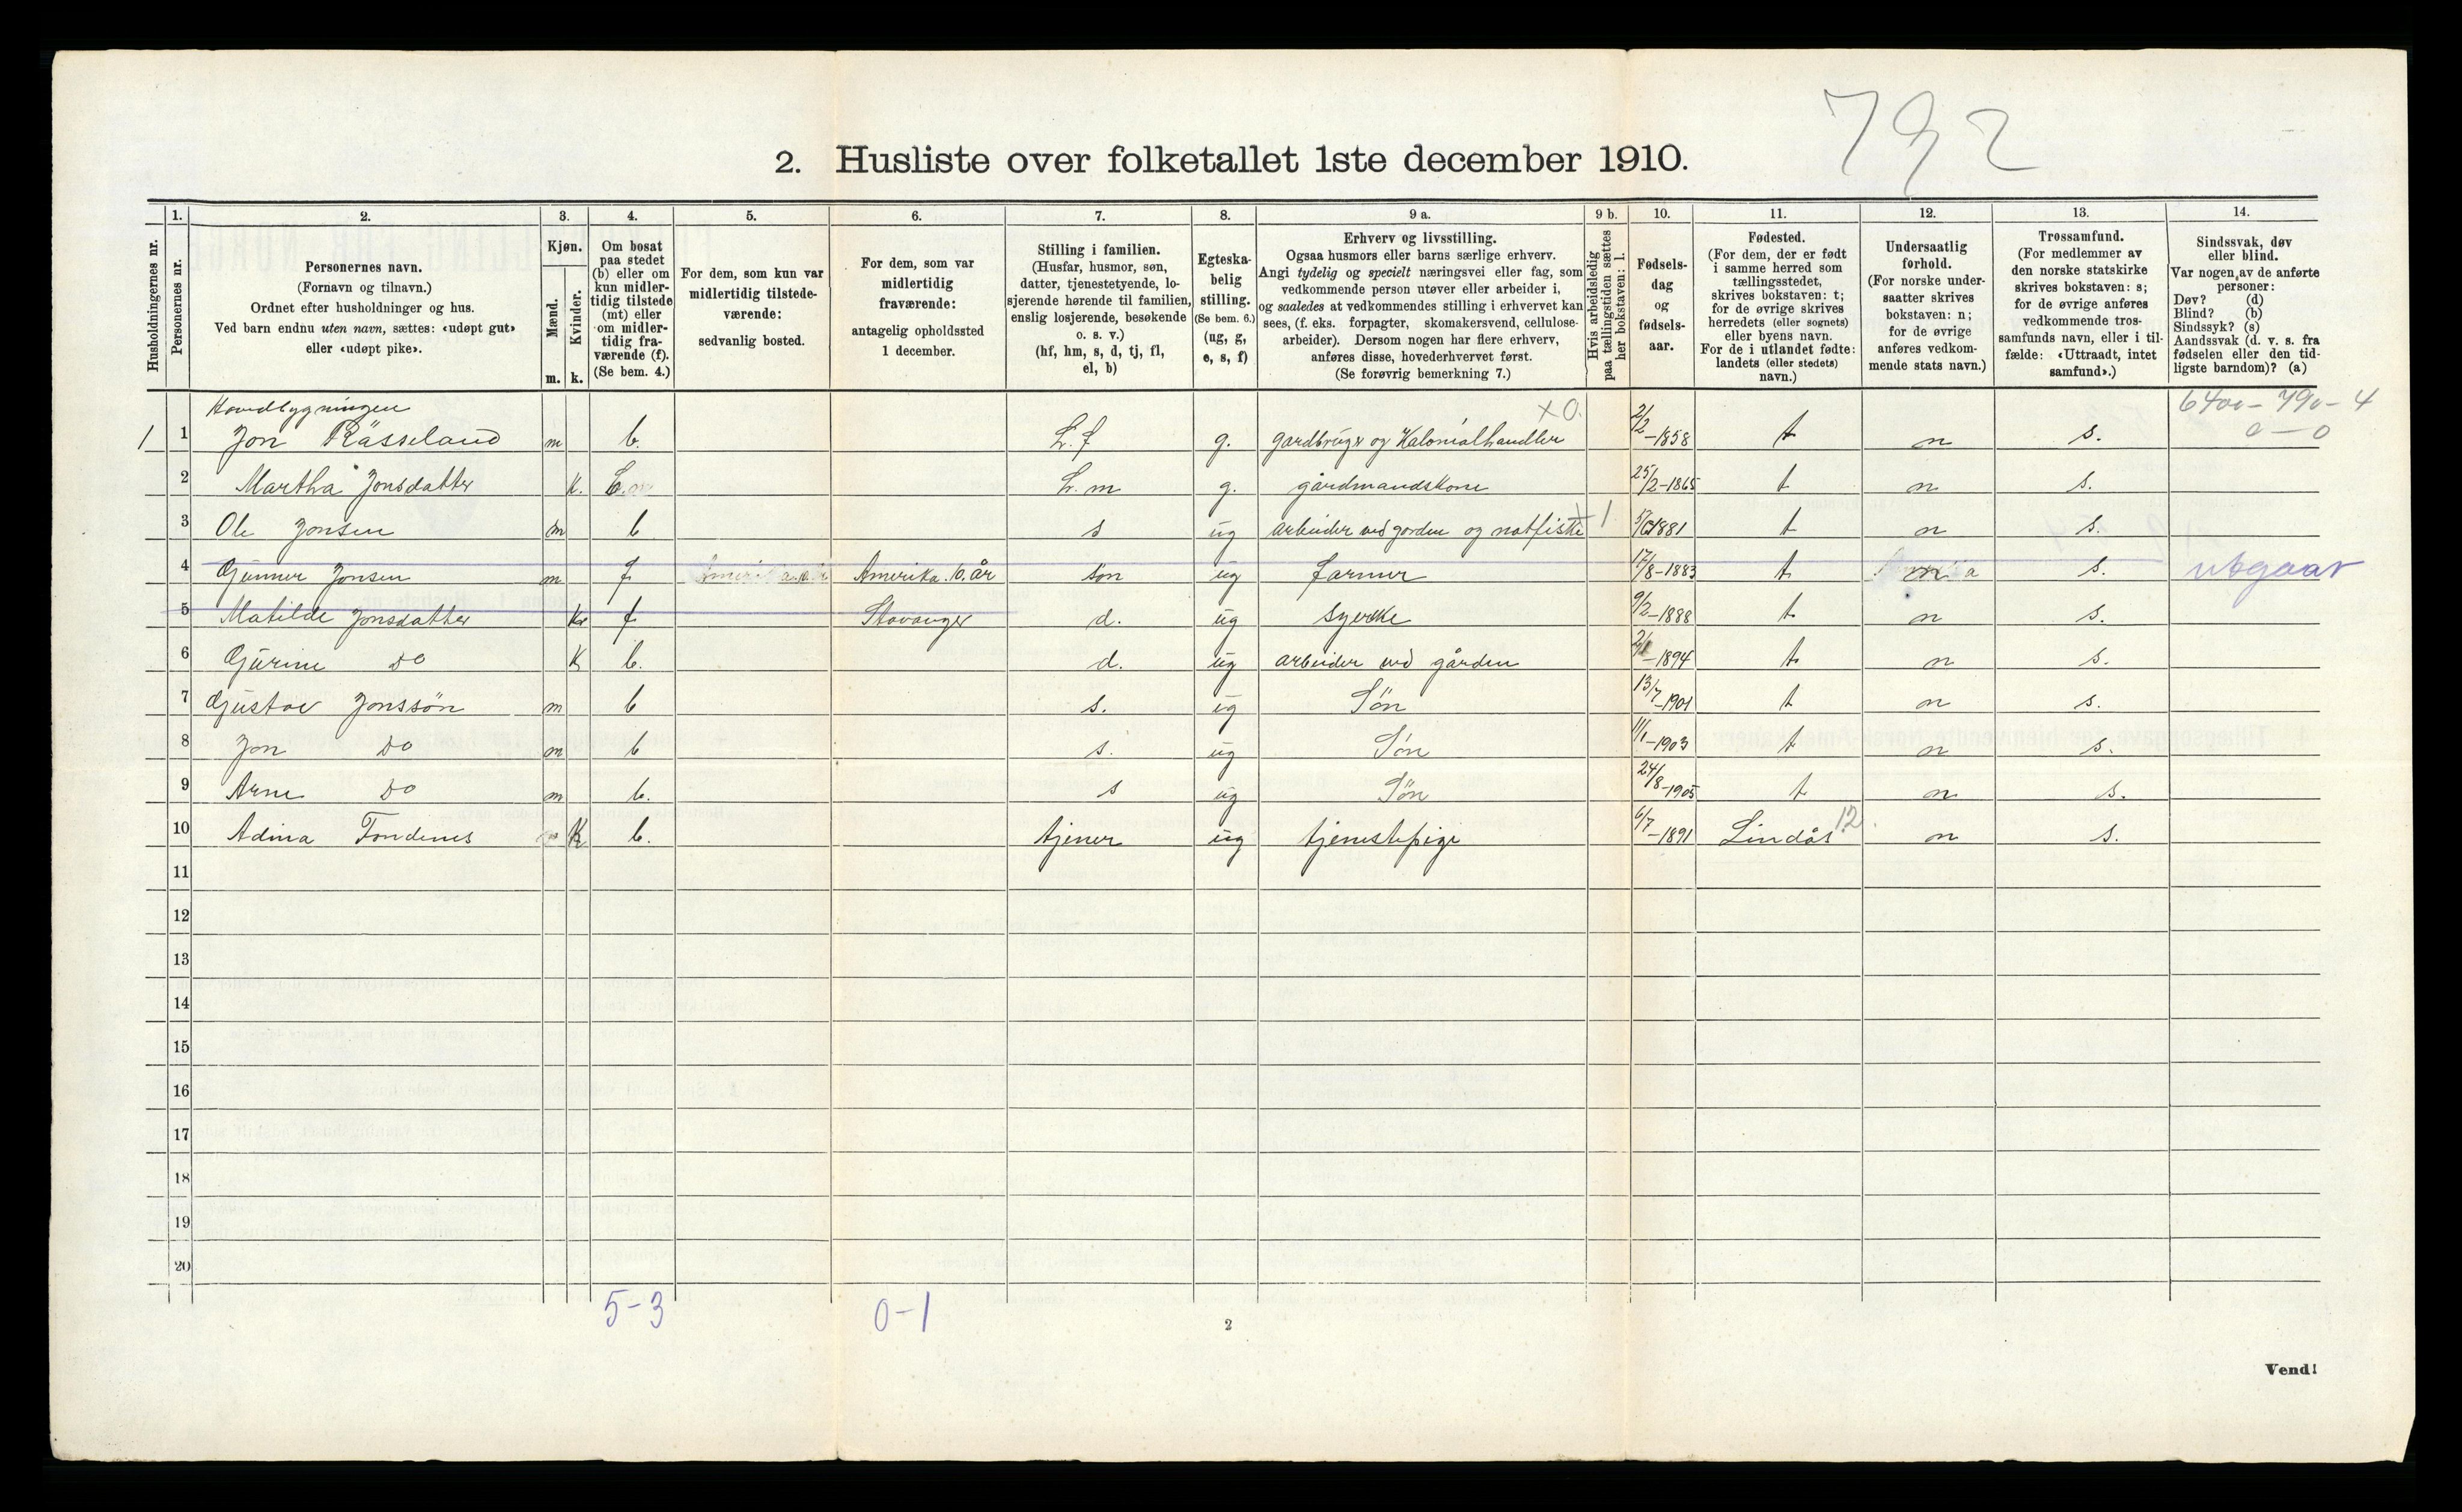 792
2. Husliste over folketallet 1ste december 1910.
Husholdningernes nr.
1.
Personernes nr.
2.
Personernes navn.
(Fornavn og tilnavn.)
Ordnet efter husholdninger og hus.
Ved barn endnu uten navn, sættes: «udøpt gut»
eller «udøpt pike».
3.
Kjøn.
Mænd.
Kvinder.
m. k.
4.
Om bosat
paa stedet
(b) eller om
kun midler-
tidig tilstede
(mt) eller
om midler-
tidig fra-
værende (f).
(Se bem. 4.)
5.
For dem, som kun var
midlertidig tilstede-
værende:
sedvanlig bosted.
6.
For dem, som var
midlertidig
fraværende:
antagelig opholdssted
1 december.
7.
Stilling i familien.
(Husfar, husmor, søn,
datter, tjenestetyende, lo-
sjerende hørende til familien,
enslig losjerende, besøkende
o. s. v.)
(hf, hm, s, d, tj, fl,
el, b)
8.
Egteska-
belig
stilling.
(Se bem. 6.)
(ug, g,
e, s, f)
9 a.
Erhverv og livsstilling.
Ogsaa husmors eller barns særlige erhverv.
Angi tydelig og specielt næringsvei eller fag, som
vedkommende person utøver eller arbeider i,
og saaledes at vedkommendes stilling i erhvervet kan
sees, (f. eks. forpagter, skomakersvend, cellulose-
arbeider). Dersom nogen har flere erhverv,
anføres disse, hovederhvervet først.
(Se forøvrig bemerkning 7.)
9 b.
Hvis arbeidsledig
paa tællingstiden sættes
her bokstaven: l.
10.
Fødsels-
dag
og
fødsels-
aar.
11.
Fødested.
(For dem, der er født
i samme herred som
tællingsstedet,
skrives bokstaven: t;
for de øvrige skrives
herredets (eller sognets)
eller byens navn.
For de i utlandet fødte:
landets (eller stedets)
navn.)
12.
Undersaatlig
forhold.
(For norske under-
saatter skrives
bokstaven: n;
for de øvrige
anføres vedkom-
mende stats navn.)
13.
Trossamfund.
(For medlemmer av
den norske statskirke
skrives bokstaven: s;
for de øvrige anføres
vedkommende tros-
samfunds navn, eller i til-
fælde: «Uttraadt, intet
samfund».)
14.
Sindssvak, døv
eller blind.
Var nogen av de anførte
personer:
Døv? (d)
Blind? (b)
Sindssyk? (s)
Aandssvak (d. v. s. fra
fødselen eller den tid-
ligste barndom)? (a)
Hovedbygningen x0. 6400 - 790 - 4
0 - 0
1 1 Jon Rässeland m b. H. f g. gardbruger og Kolonialhandler 2/2 -1858 t n s.
2 Martha Jonsdatter k. b. H. m g. gårdmandskone 25/2-1865 t n s.
3 Ole Jonsen m b s ug arbeider ved gorden og notfiske 1881 t n s.
4 Gunner Jonsen m f Amerika. 10. år søn ug farmer 17/8-1883 t n s. utgaar
5 Matilde Jonsdatter k f Stavanger d. ug syerke 9/2-1888 t n s.
6 Gurine Do k b. d. ug arbeider ved gården -1894 t n s.
7 Gustav Jonssön m b s. ug Sön 13/7-1901 t n s.
8 Jon Do m b s. ug Sön 11/1-1903 t n s.
9 Arne Do m b. s ug Sön 24/8-1905 t n s.
10 Adina Fondenes k b. tjener ug tjenestepige 6/7-1891 Lindås 12. n s.
11
12
13
14
15
16
17
18
19
20
5-3 0-1
2
Vend!